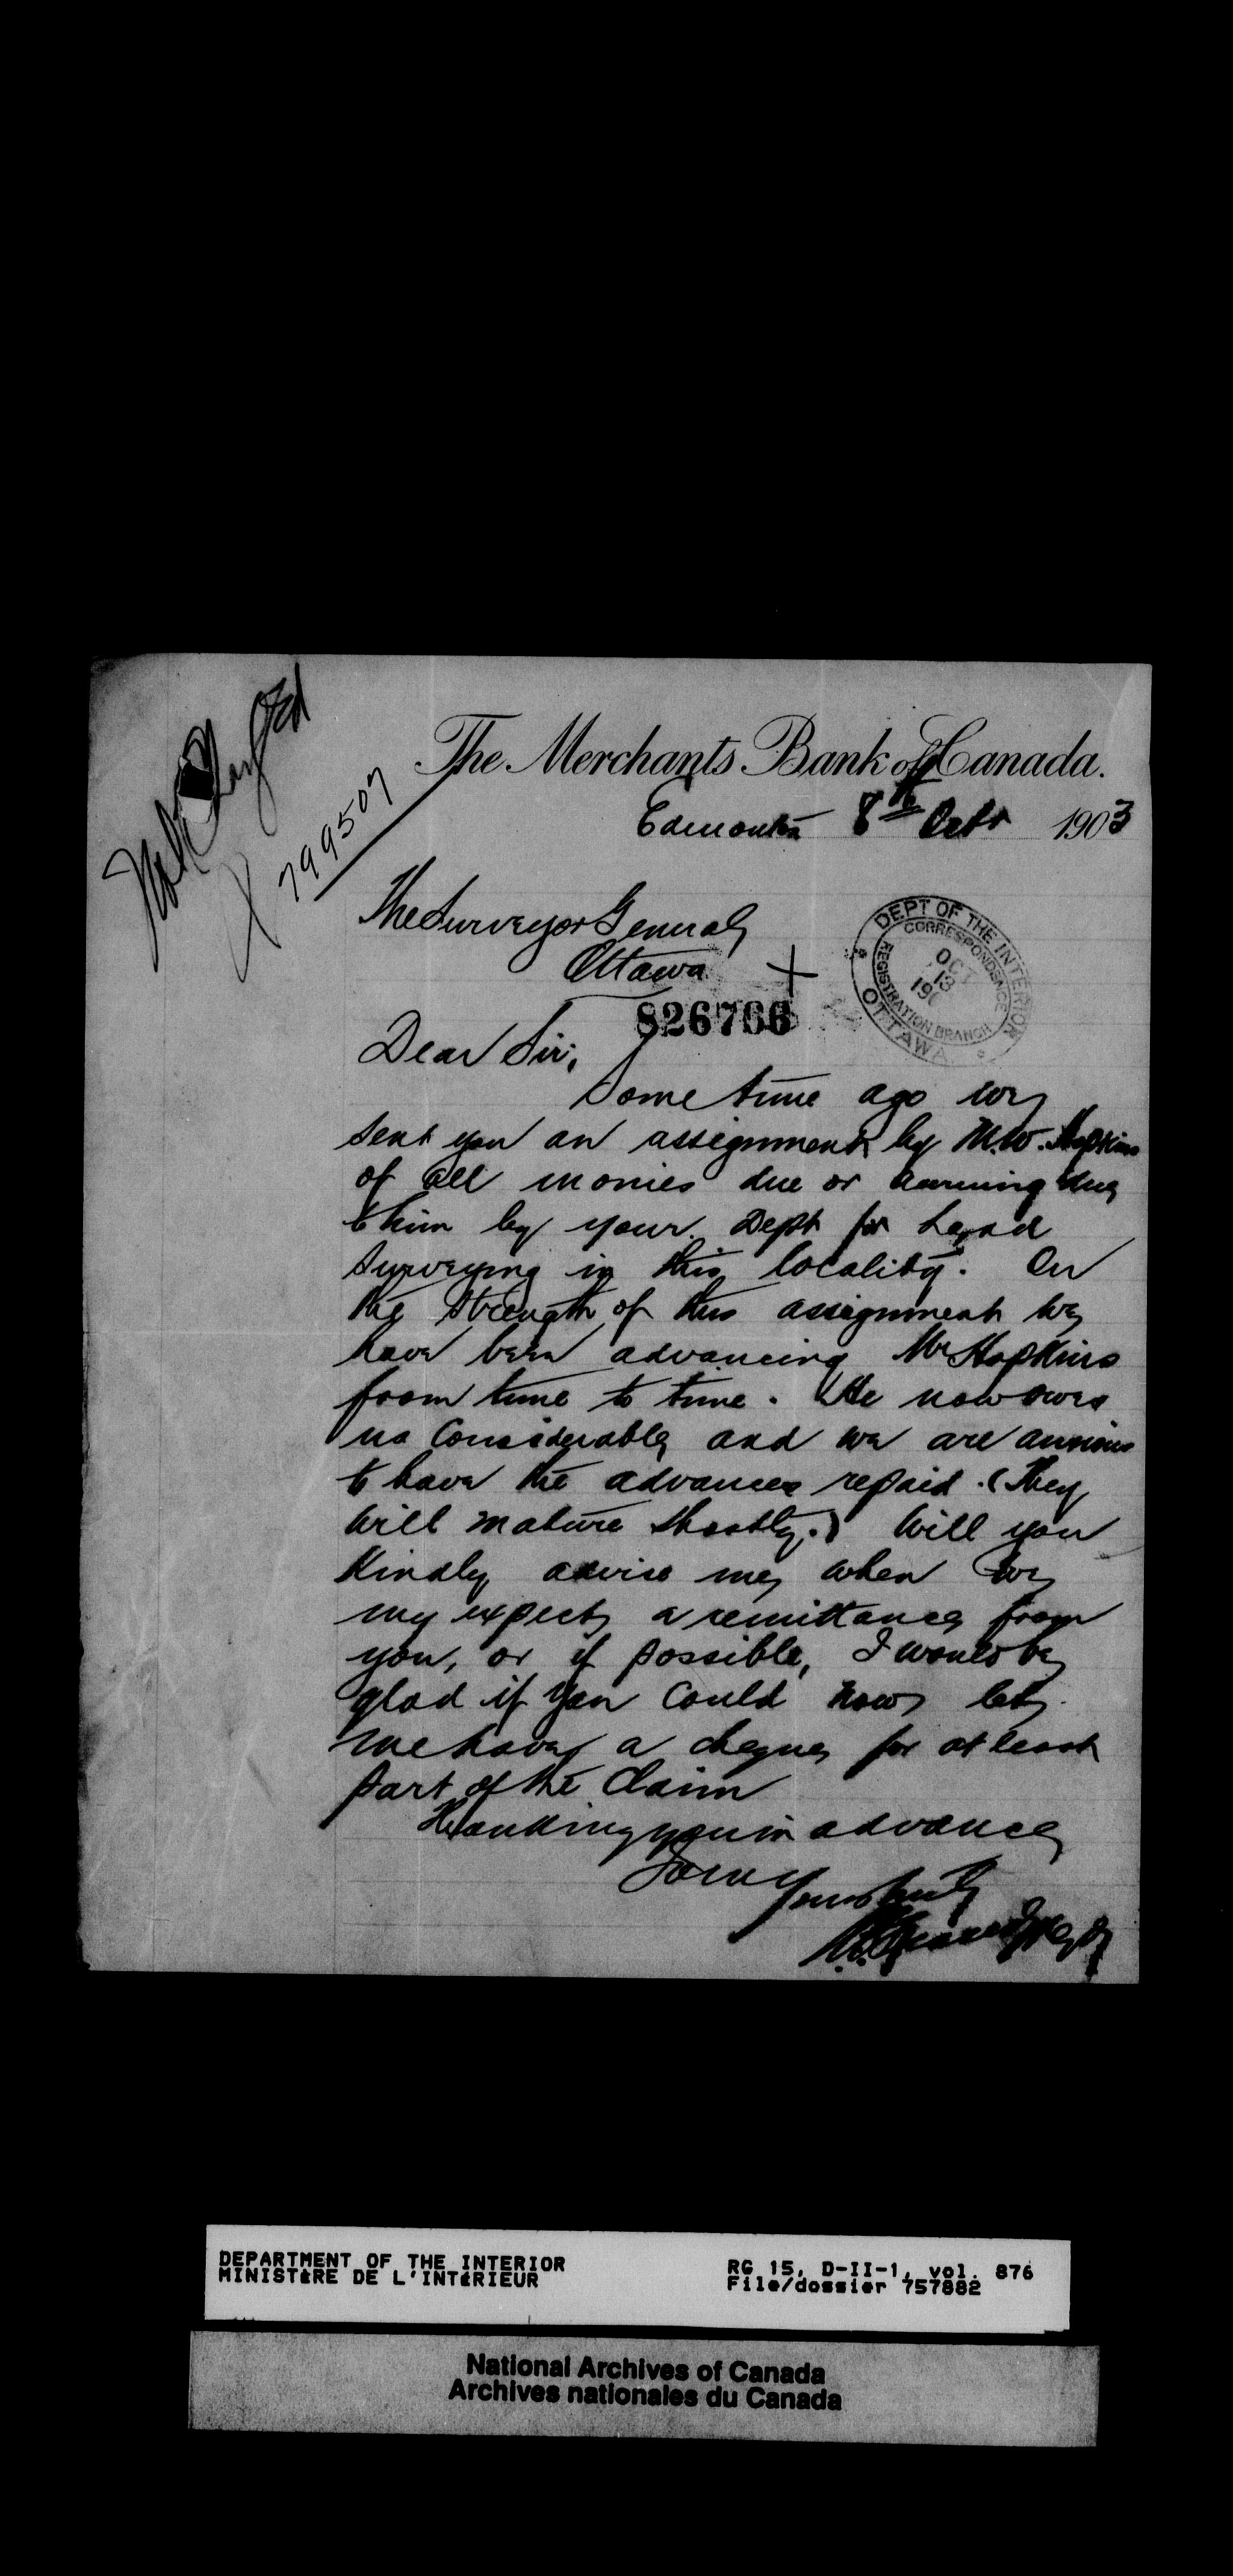 799507
The Merchants Bank of Canada.
Edmonton 8th Octr 1903
The Surveyor General
Ottawa
DEPT OF THE INTERIOR
CORRESPONDENCE
OCT
13
190
REGISTRATION BRANCH
OTTAWA
826766
Dear Sir;
Some time ago we
sent you an assignment by M.W. Hopkins
of all monies due or accruing due
to him by your Dept for Land
Surveying in this locality. On
the strength of this assignment we
have been advancing Mr Hopkins
from time to time. He now owes
us Considerable and we are anxious
to have the advances repaid. (They
will mature shortly.) Will you
Kindly advise me when we
my expect a remittance from
you, or if possible, I would be
glad if you Could now let
me have a cheque for at least
part of the Claim
Thanking you in advance
Yours truly
DEPARTMENT OF THE INTERIOR
MINISTÈRE DE L'INTÉRIEUR
RG 15, D-II-1, vol. 876
File/dossier 757882
National Archives of Canada
Archives nationales du Canada